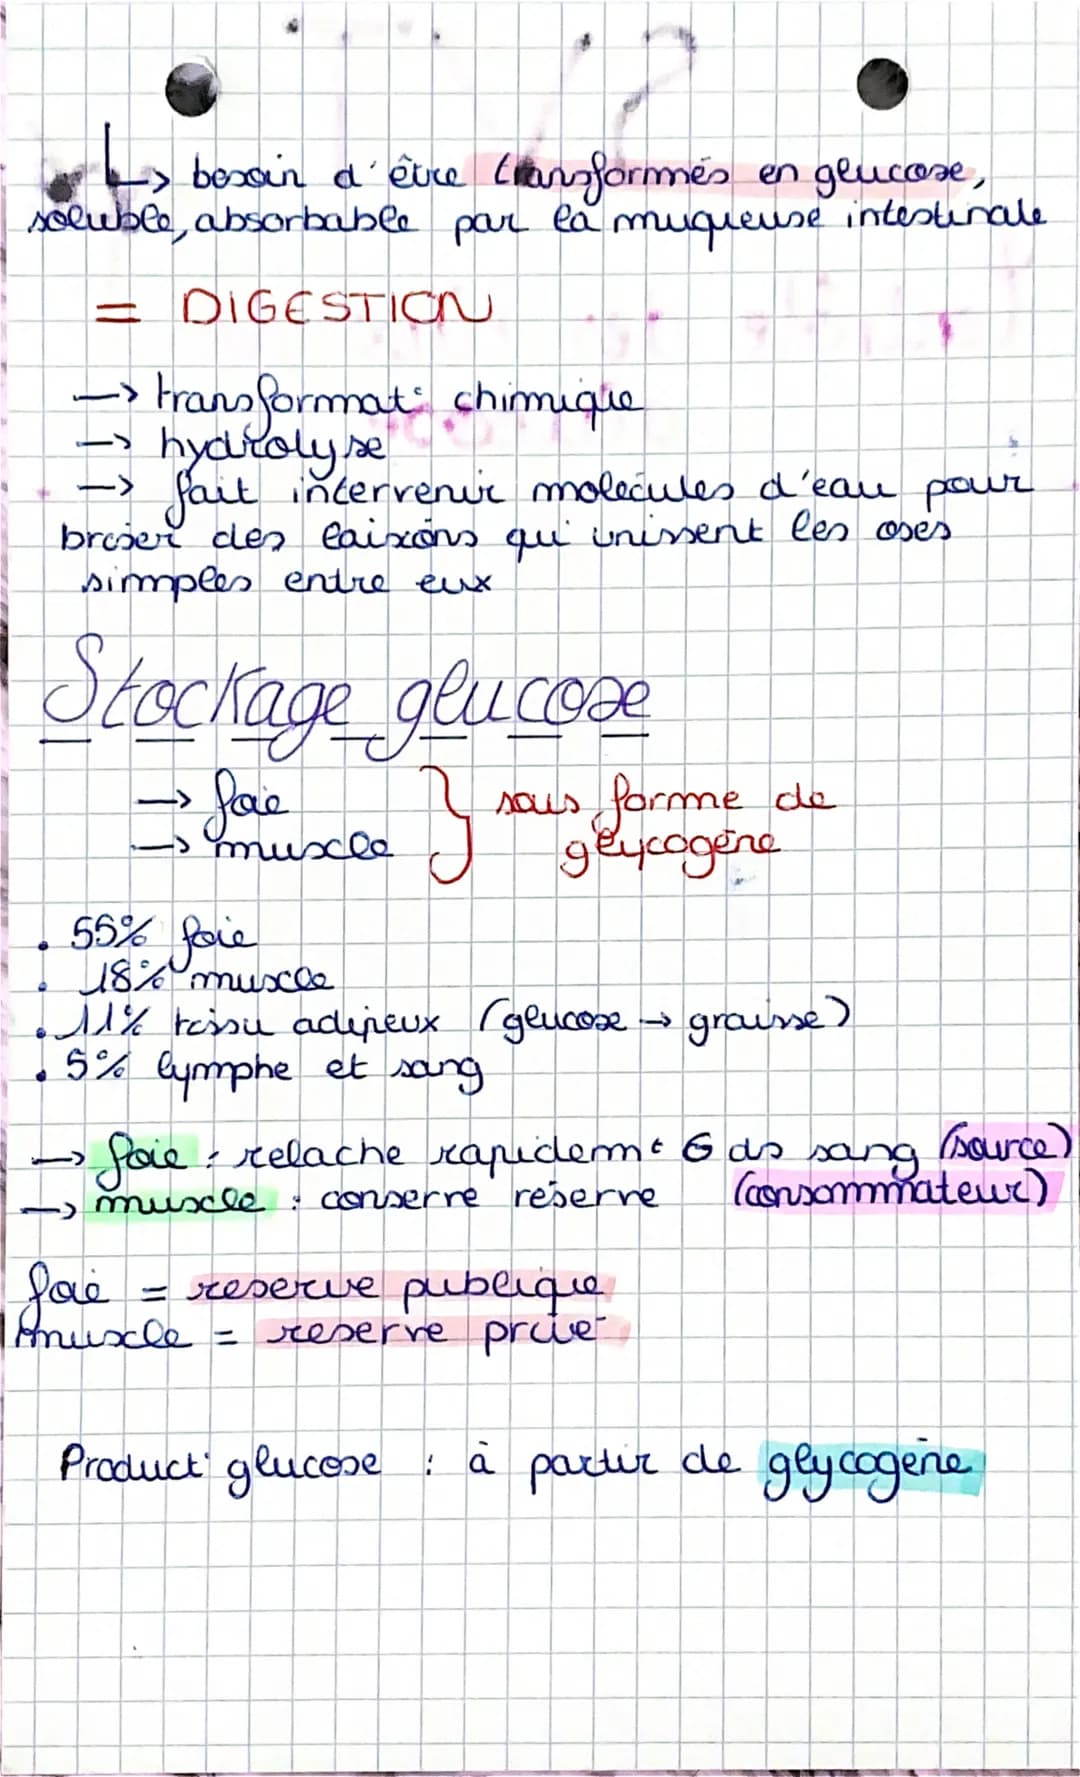 ↳ besoin d'être transformés en glucose,
soluble, absorbable par la muqueuse intestinale
= DIGESTION
→ transformat° chimique
→ hydrolyse
→ fait intervenir molécules d'eau pour
briser des laixons qui unissent les oses
simples entre eux
Stockage glucose
→ foie } sous forme de
→ muscle glycogène
. 55% foie
. 18% muscle
. 11% tissu adipeux (glucose → graisse)
. 5% lymphe et sang
→ foie : relache rapidemt G ds sang (source)
→ muscle : conserve réserve (consommateur)
foie = reserve publique
muscle = reserve privé
Product° glucose : à partir de glycogène